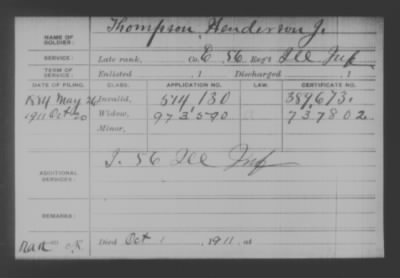 NAME OF SOLDIER: Thompson, Henderson J.
SERVICE: Late rank, Co. E 56 Reg't Ill Inf
TERM OF SERVICE: Enlisted , 1 Discharged , 1
DATE OF FILING. CLASS. APPLICATION NO. LAW. CERTIFICATE NO.
1884 May 26 Invalid, 514,130 389,673.
1911 Oct 20 Widow, 973,590 737,802.
Minor,
ADDITIONAL SERVICES: I. 56 Ill Inf
REMARKS:
Died Oct 1, 1911, at